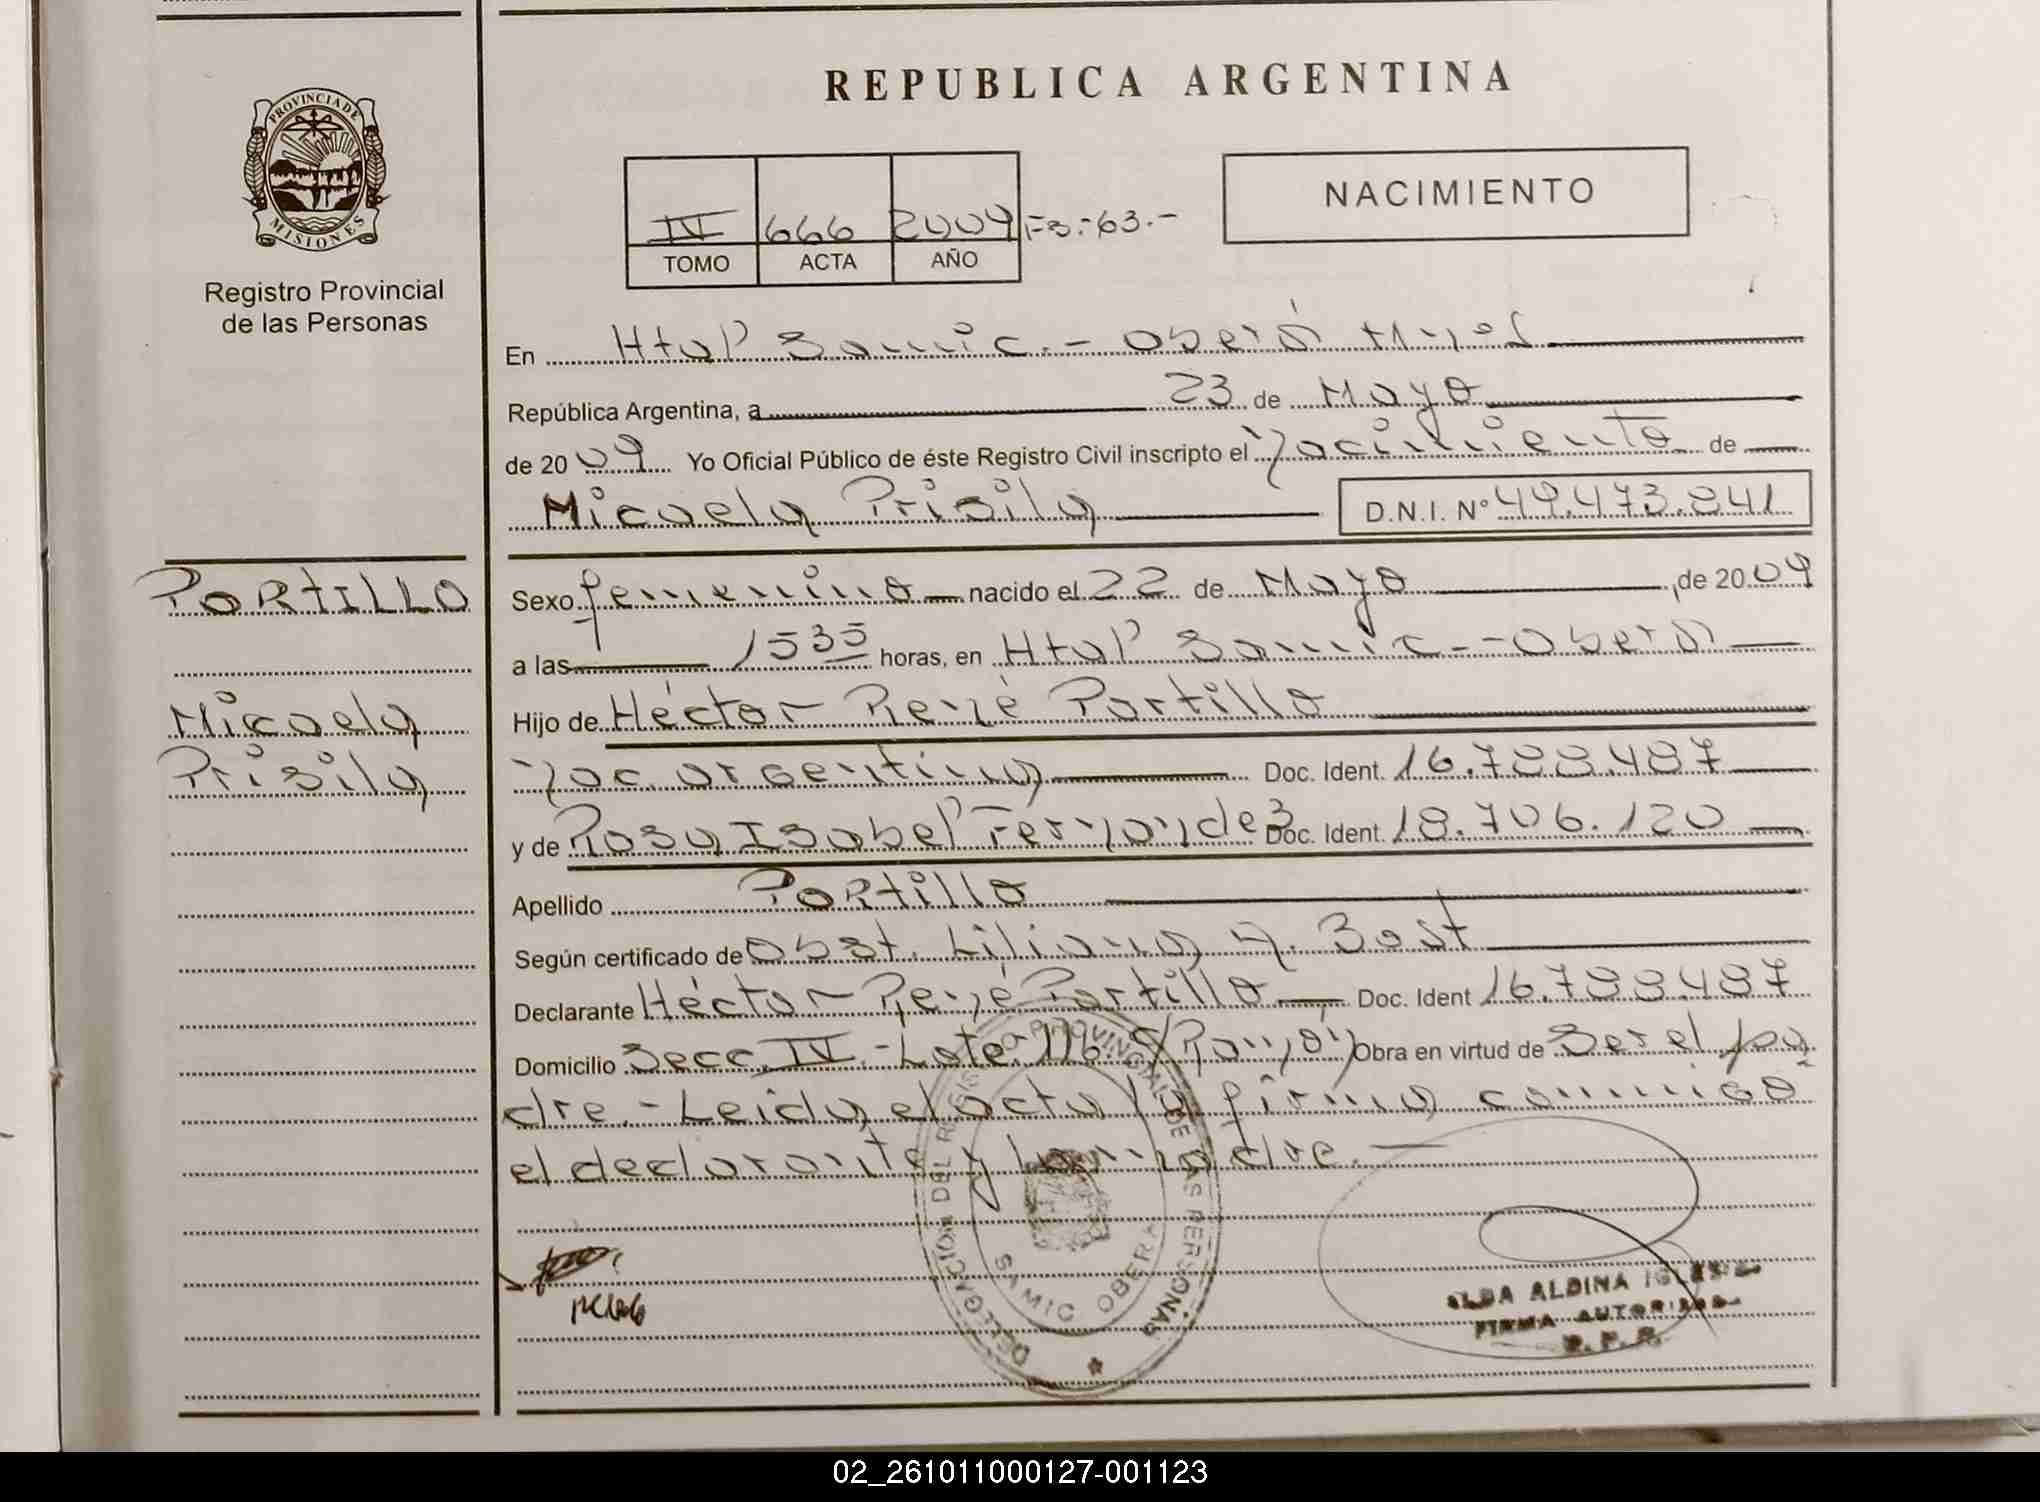 REPUBLICA ARGENTINA
PROVINCIA DE
MISIONES
Registro Provincial
de las Personas
NACIMIENTO
IV 666 2009 F-3.-63.-
TOMO ACTA AÑO
En Htal Samic.- Oberá Mnes
República Argentina, a 23 de Mayo
de 2009 Yo Oficial Público de éste Registro Civil inscripto el nacimiento de
Micaela Prisila D.N.I. Nº 49.473.841
PORTILLO
Micaela
Prisila
Sexo femenino nacido el 22 de Mayo, de 2009
a las 1535 horas, en Htal Samic - Oberá
Hijo de Héctor René Portillo
nac. argentina Doc. Ident. 16.788.487
y de Rosa Isabel Fernández Doc. Ident. 18.706.120
Apellido PORtillo
Según certificado de Obst. Liliana A. Bost
Declarante Héctor René Portillo Doc. Ident 16.788.487
Domicilio Secc. IV.- Lote 116 C/Ramón Obra en virtud de Ser el pa
dre.- Leida el acta la firma conmigo
el declarante y la madre.-
DELEGACION DEL REGISTRO PROVINCIAL DE LAS PERSONAS
SAMIC OBERA
ALDINA
FIRMA AUTORIZADA
02_261011000127-001123